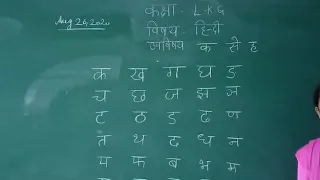 Aug 26, 2020
कक्षा - L.K.G
विषय - हिन्दी
क से ह
क ख ग घ ङ
च छ ज झ ञ
ट ठ ड ढ ण
त थ द ध न
प फ ब भ म